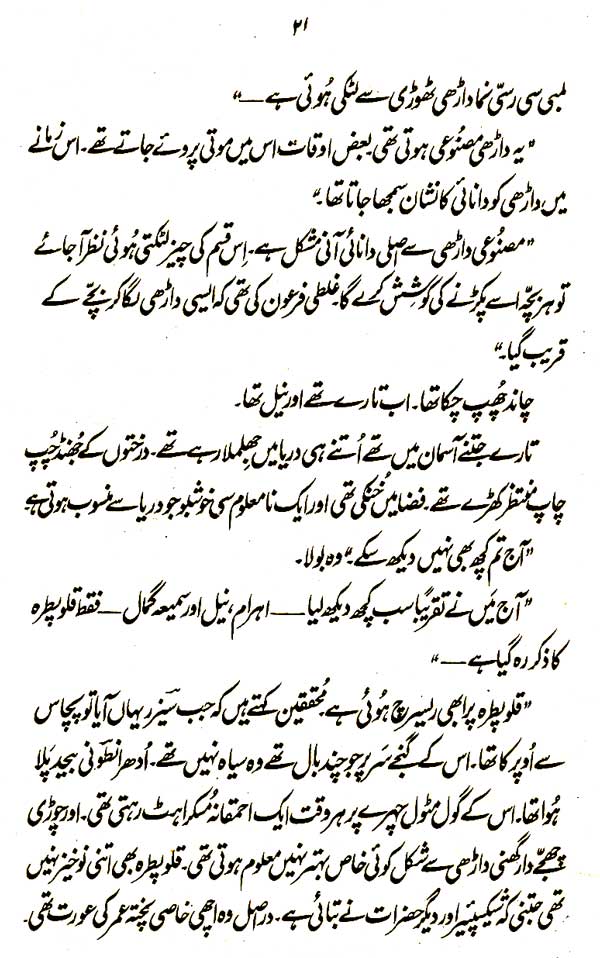 ۲۱
لمبی سی رسّی نما داڑھی ٹھوڑی سے لٹکی ہُوئی ہے —“
”یہ داڑھی مصنُوعی ہوتی تھی۔ بعض اوقات اس میں موتی پروئے جاتے تھے۔ اس زمانے
میں داڑھی کو دانائی کا نشان سمجھا جاتا تھا۔“
”مصنُوعی داڑھی سے اصلی دانائی آنی مشکل ہے۔ اِس قسم کی چیز لٹکتی ہُوئی نظر آجائے
تو ہر بچّہ اسے پکڑنے کی کوشِش کرے گا۔ غلطی فرعون کی تھی کہ ایسی داڑھی لگا کر بچّے کے
قریب گیا۔“
چاند چھُپ چکا تھا۔ اب تارے تھے اور نیل تھا۔
تارے جتنے آسمان میں تھے اُتنے ہی دریا میں جھِلملا رہے تھے۔ درختوں کے جُھنڈ چُپ
چاپ منتظر کھڑے تھے۔ فضا میں خُنکی تھی اور ایک نامعلوم سی خوشبو جو دریا سے منسوب ہوتی ہے۔
”آج تم کچھ بھی نہیں دیکھ سکے۔“ وہ بولا۔
”آج مَیں نے تقریبًا سب کچھ دیکھ لیا — اہرام، نیل اور سمیعہ گمال — فقط قلوپطرہ
کا ذکر رہ گیا ہے —“
”قلوپطرہ پر ابھی ریسرچ ہُوئی ہے۔ مُحققین کہتے ہیں کہ جب سیزر یہاں آیا تو پچاس
سے اُوپر کا تھا۔ اس کے گنجے سَر پر جو چند بال تھے وہ سیاہ نہیں تھے۔ اُدھر انطونی بیحد پَلا
ہُوا تھا۔ اس کے گول مٹول چہرے پر ہر وقت ایک احمقانہ مُسکراہٹ رہتی تھی۔ اور چوڑی
چھجّے دار گھنی داڑھی سے شکل کوئی خاص بہتر نہیں معلوم ہوتی تھی۔ قلوپطرہ بھی اتنی نوخیز نہیں
تھی جتنی کہ شیکسپئیر اور دیگر حضرات نے بتائی ہے۔ دراصل وہ اچھی خاصی پختہ عمر کی عورت تھی۔